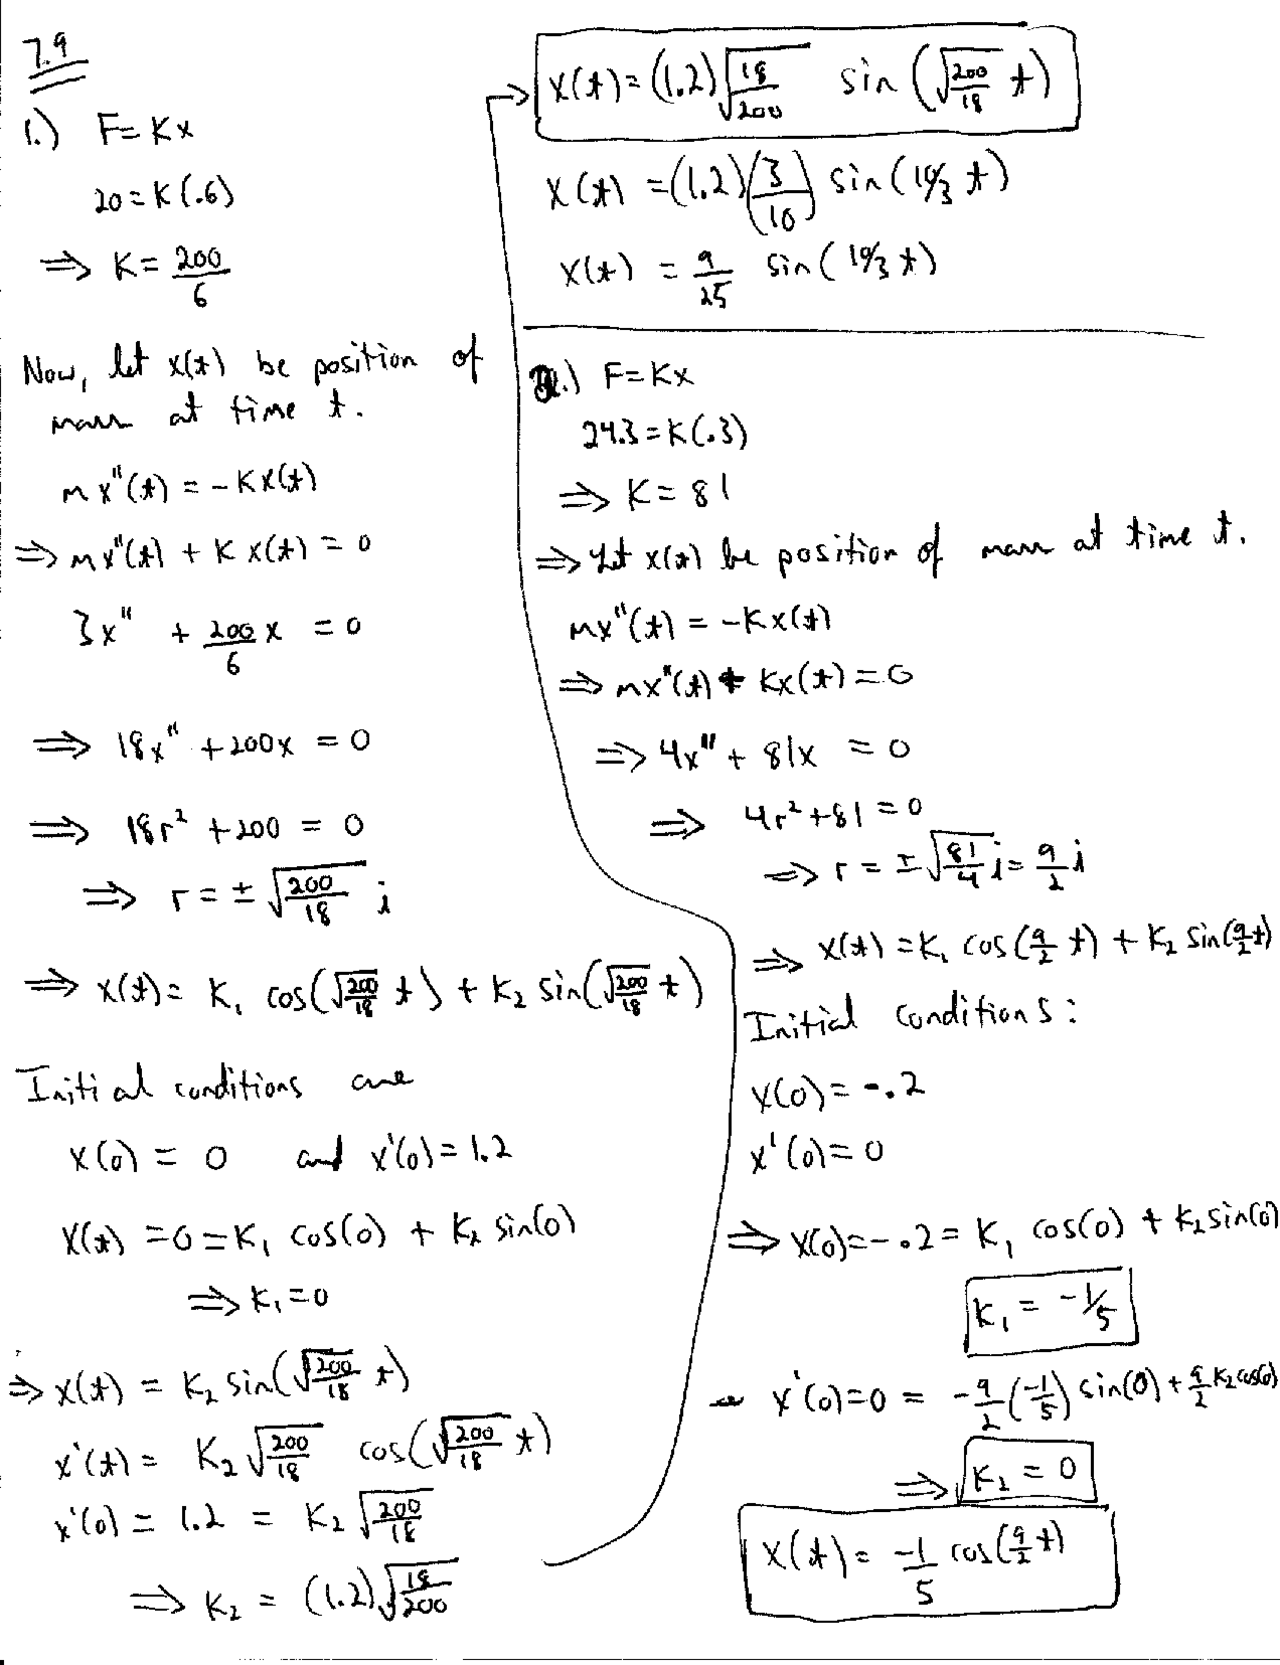 7.9
1.) F=Kx
20=K(.6)
⇒ K = 200/6
Now, let x(t) be position of
mass at time t.
mx''(t) = -Kx(t)
⇒ mx''(t) + Kx(t) = 0
3x'' + 200/6 x = 0
⇒ 18x'' + 200x = 0
⇒ 18r² + 200 = 0
⇒ r = ± √(200/18) i
⇒ x(t) = K₁ cos(√(200/18) t) + K₂ sin(√(200/18) t)
Initial conditions are
x(0) = 0 and x'(0) = 1.2
x(t) = 0 = K₁ cos(0) + K₂ sin(0)
⇒ K₁ = 0
⇒ x(t) = K₂ sin(√(200/18) t)
x'(t) = K₂ √(200/18) cos(√(200/18) t)
x'(0) = 1.2 = K₂ √(200/18)
⇒ K₂ = (1.2)√(18/200)
x(t) = (1.2)√(18/200) sin(√(200/18) t)
x(t) = (1.2)(3/10) sin(10/3 t)
x(t) = 9/25 sin(10/3 t)
2.) F=Kx
24.3=K(.3)
⇒ K = 81
⇒ Let x(t) be position of mass at time t.
mx''(t) = -Kx(t)
⇒ mx''(t) + Kx(t) = 0
⇒ 4x'' + 81x = 0
⇒ 4r² + 81 = 0
⇒ r = ± √(81/4) i = 9/2 i
⇒ x(t) = K₁ cos(9/2 t) + K₂ sin(9/2 t)
Initial conditions:
x(0) = -.2
x'(0) = 0
⇒ x(0) = -.2 = K₁ cos(0) + K₂ sin(0)
K₁ = -1/5
x'(0) = 0 = -9/2 (-1/5) sin(0) + 9/2 K₂ cos(0)
⇒ K₂ = 0
x(t) = -1/5 cos(9/2 t)